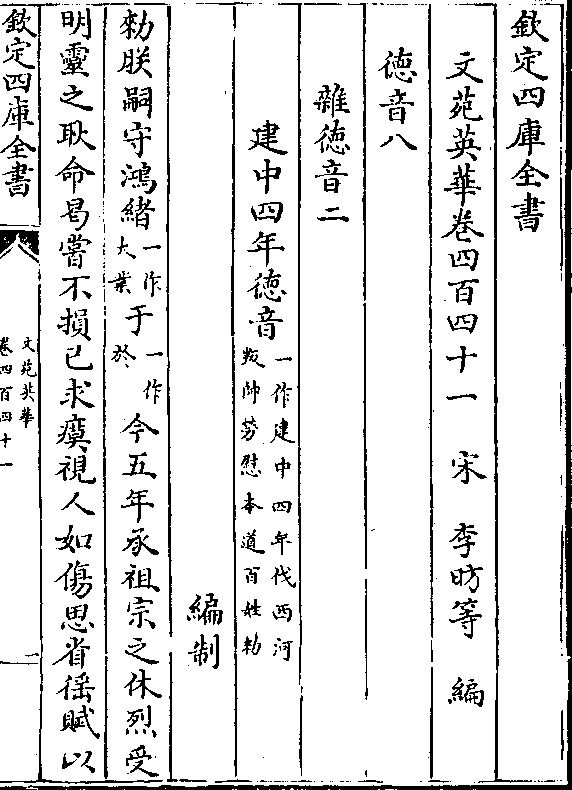 欽定四庫全書
文苑英華卷四百四十一　宋　李昉等　編
徳音八
雜徳音二
建中四年徳音一作建中四年伐西河叛帥勞慰本道百姓勑
編制
勑朕嗣守鴻緒一作大業于一作於今五年承祖宗之休烈受
明靈之耿命曷嘗不損已求瘼視人如傷思省徭賦以
欽定四庫全書
文苑英華
卷四百四十一
一